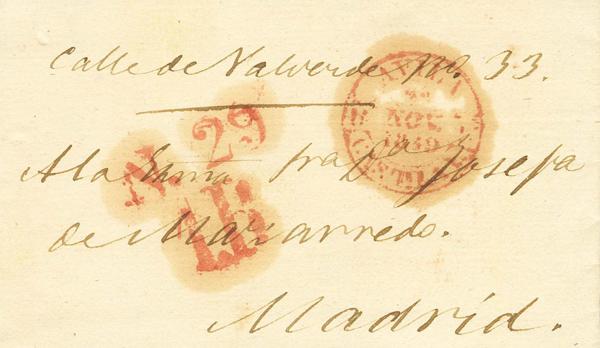 Calle de Valverde nº. 33.
AVILA
NOV
N. 29
A la Exma Sra Da Josefa
de Mazarredo.
Madrid.